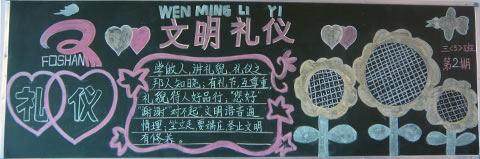 WEN MING LI YI
文明礼仪
FOSHAN
礼仪
三(3)班
第2期
学做人,讲礼貌,礼仪之
邦人知晓;有礼节,互尊重,
礼貌待人好品行;"您好"
"谢谢"对不起,文明语言通
情理;
举止文明
有修养。